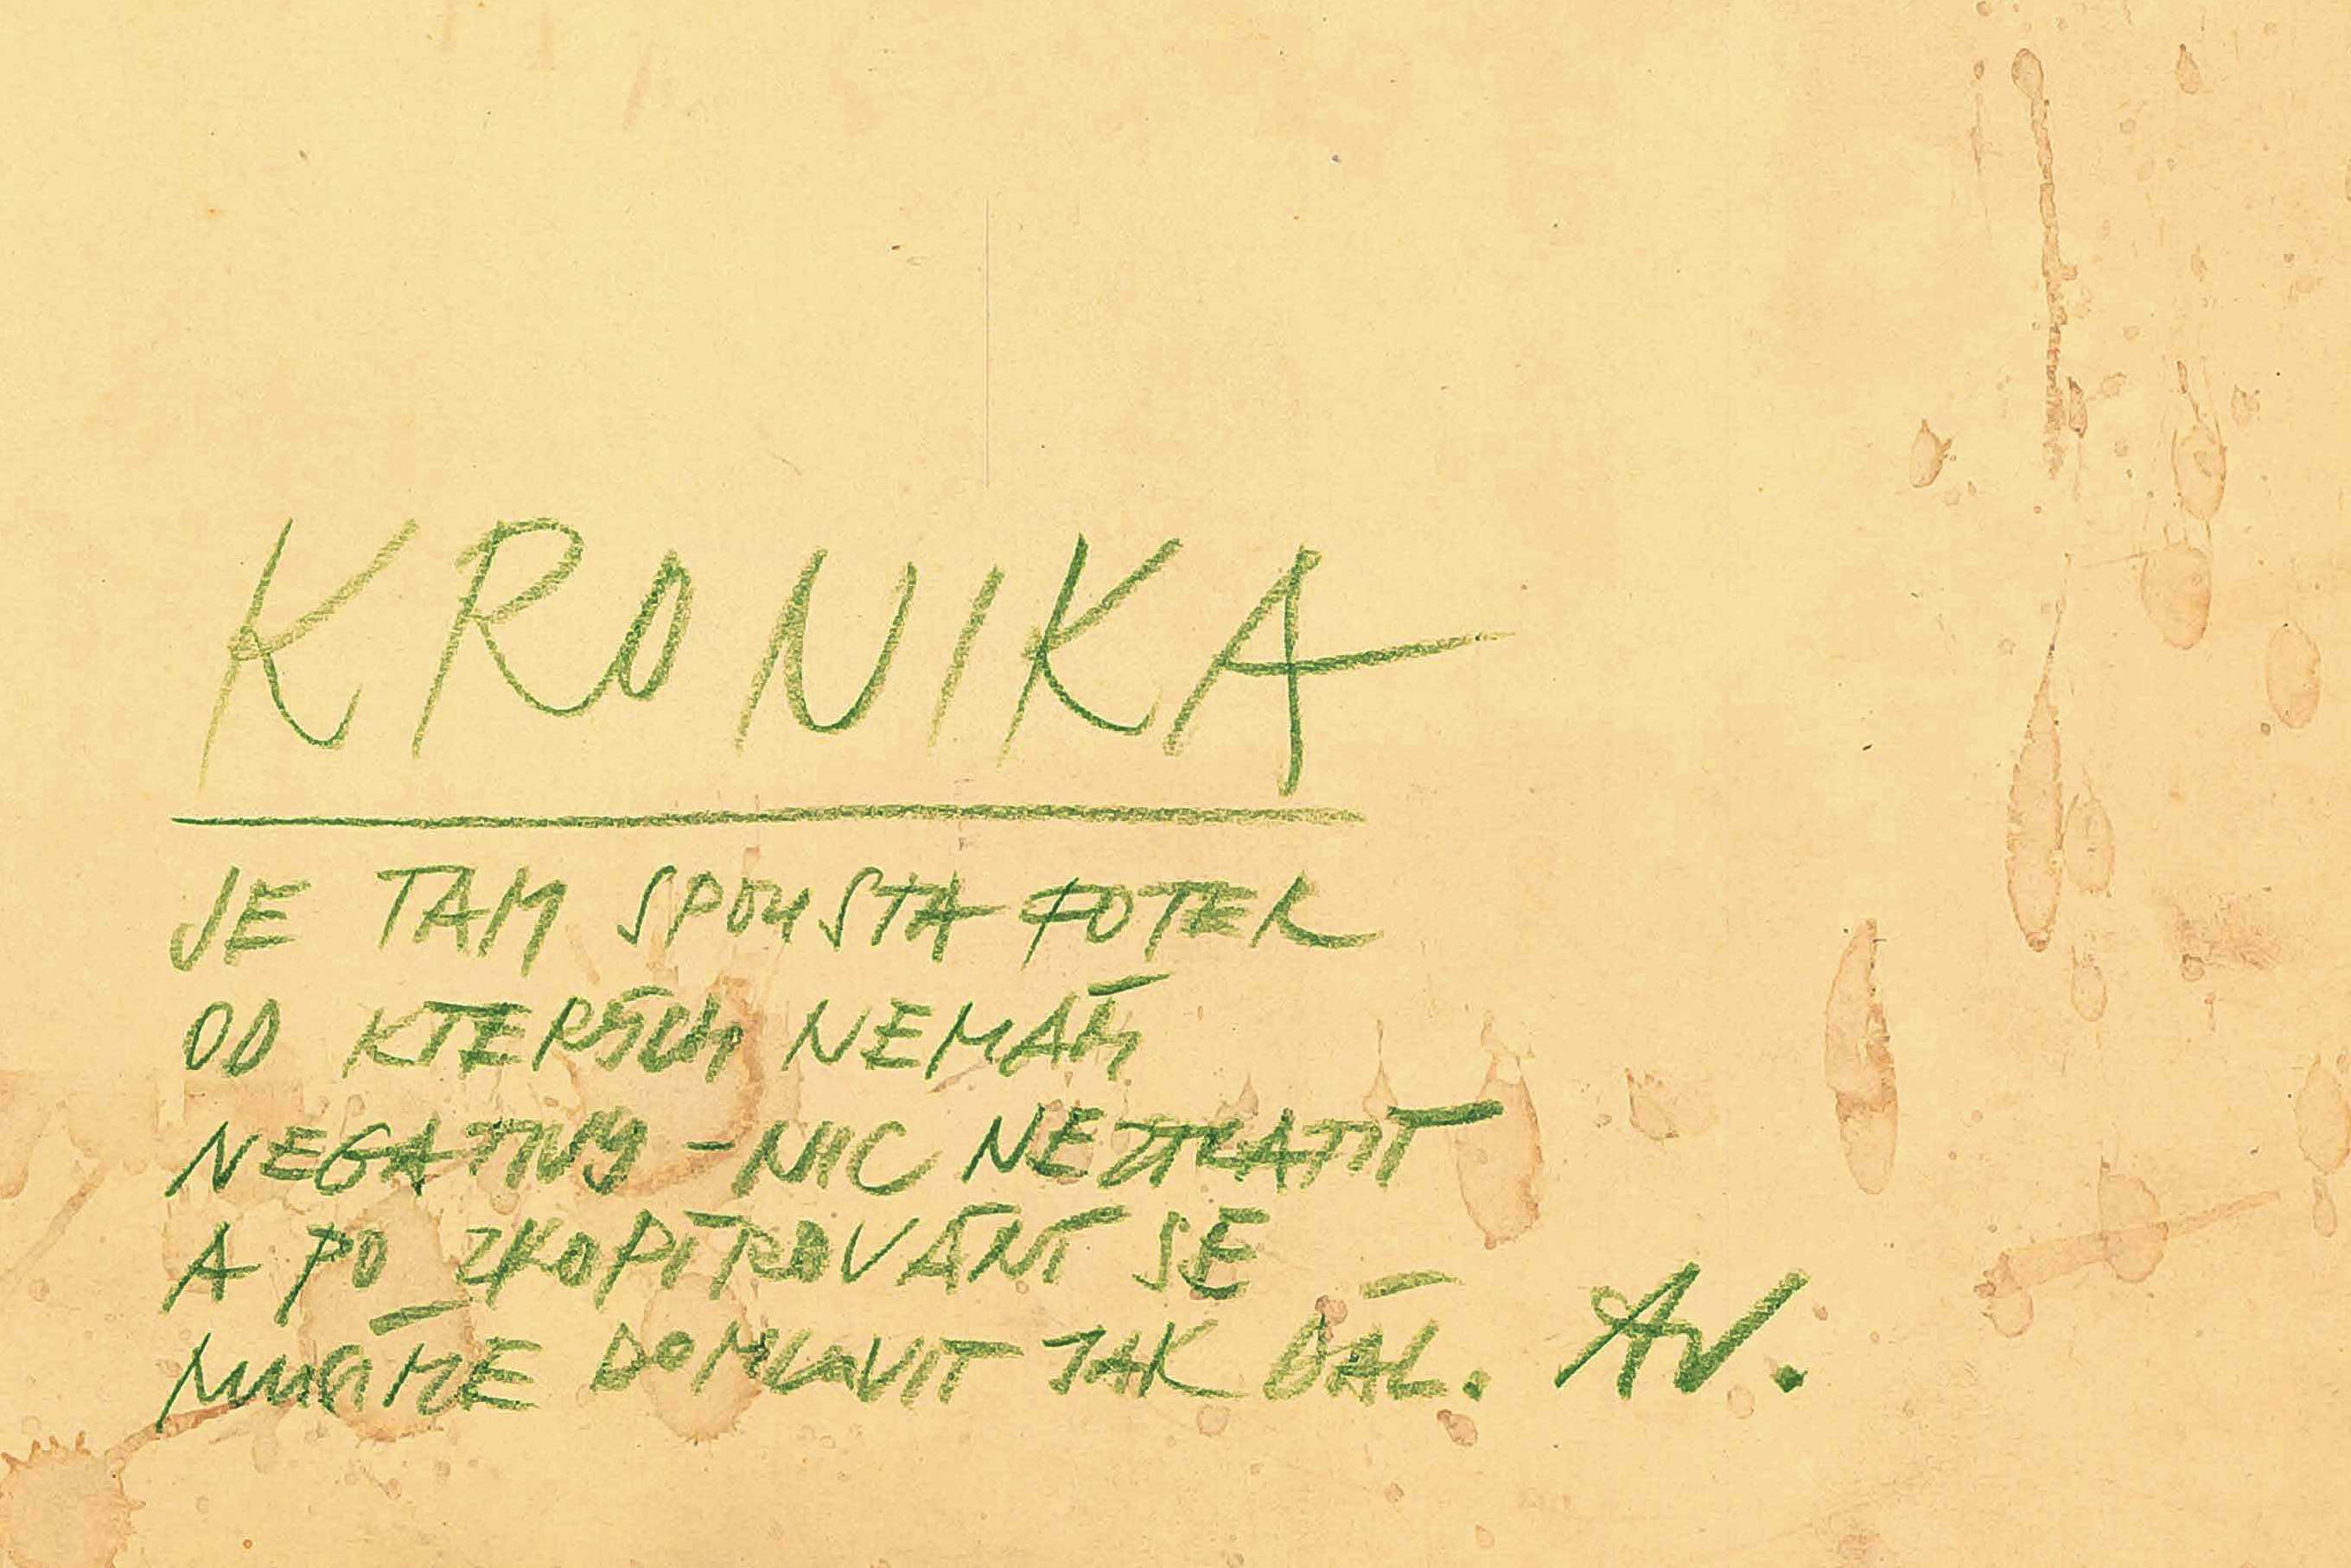 KRONIKA
JE TAM SPOUSTA FOTEK
OD KTERÝCH NEMÁM
NEGATIVY - NIC NEZTRATIT
A PO ZKOPÍROVÁNÍ SE
MUSÍME DOMLUVIT JAK DÁL. AV.